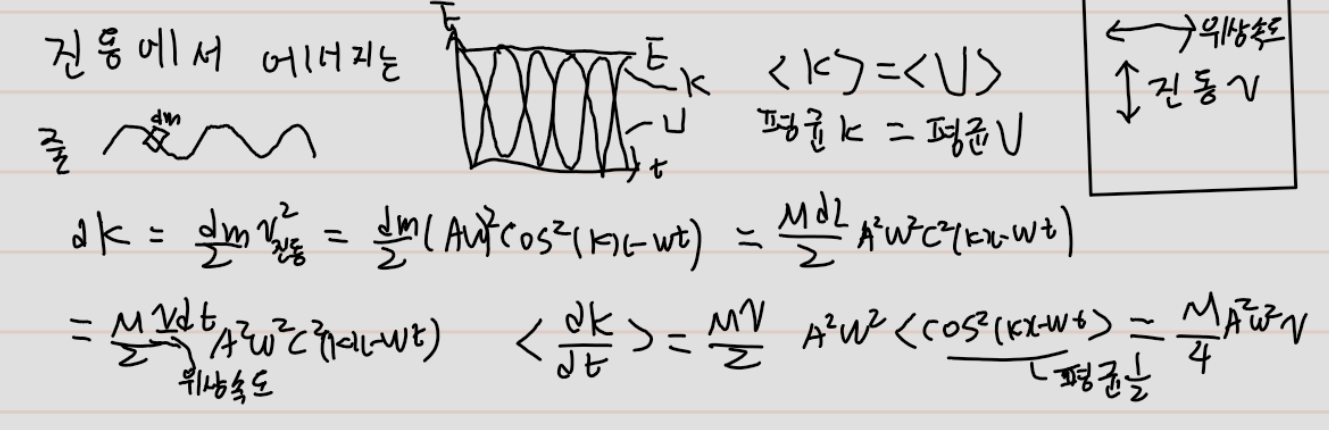 진동에서 에너지는
E
E
K
U
t
<K> = <U>
평균 K = 평균 U
위상속도
진동 v
줄
dm
dK = dm/2 v²진동 = dm/2 (Aω)² cos²(kx-ωt) = μdl/2 A²ω²c²(kx-ωt)
= μvdt/2 A²ω²c²(kx-ωt)
위상속도
<dK/dt> = μv/2 A²ω² <cos²(kx-ωt)> = μ/4 A²ω²v
평균 1/2